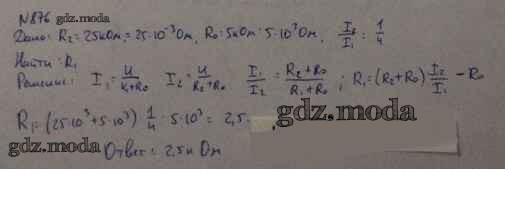 N876
gdz.moda
Дано: R₂ = 25кОм = 25·10⁻³Ом, R₀: 5кОм · 5·10³Ом, I₂/I₁ = 1/4
Найти: R₁
Решение: I₁ = U/(R₁+R₀) I₂ = U/(R₂+R₀) I₁/I₂ = (R₂+R₀)/(R₁+R₀); R₁ = (R₂+R₀) I₂/I₁ - R₀
R₁ = (25·10³+5·10³) 1/4 · 5·10³ = 2,5·
gdz.moda
gdz.moda
Ответ: 2,5кОм